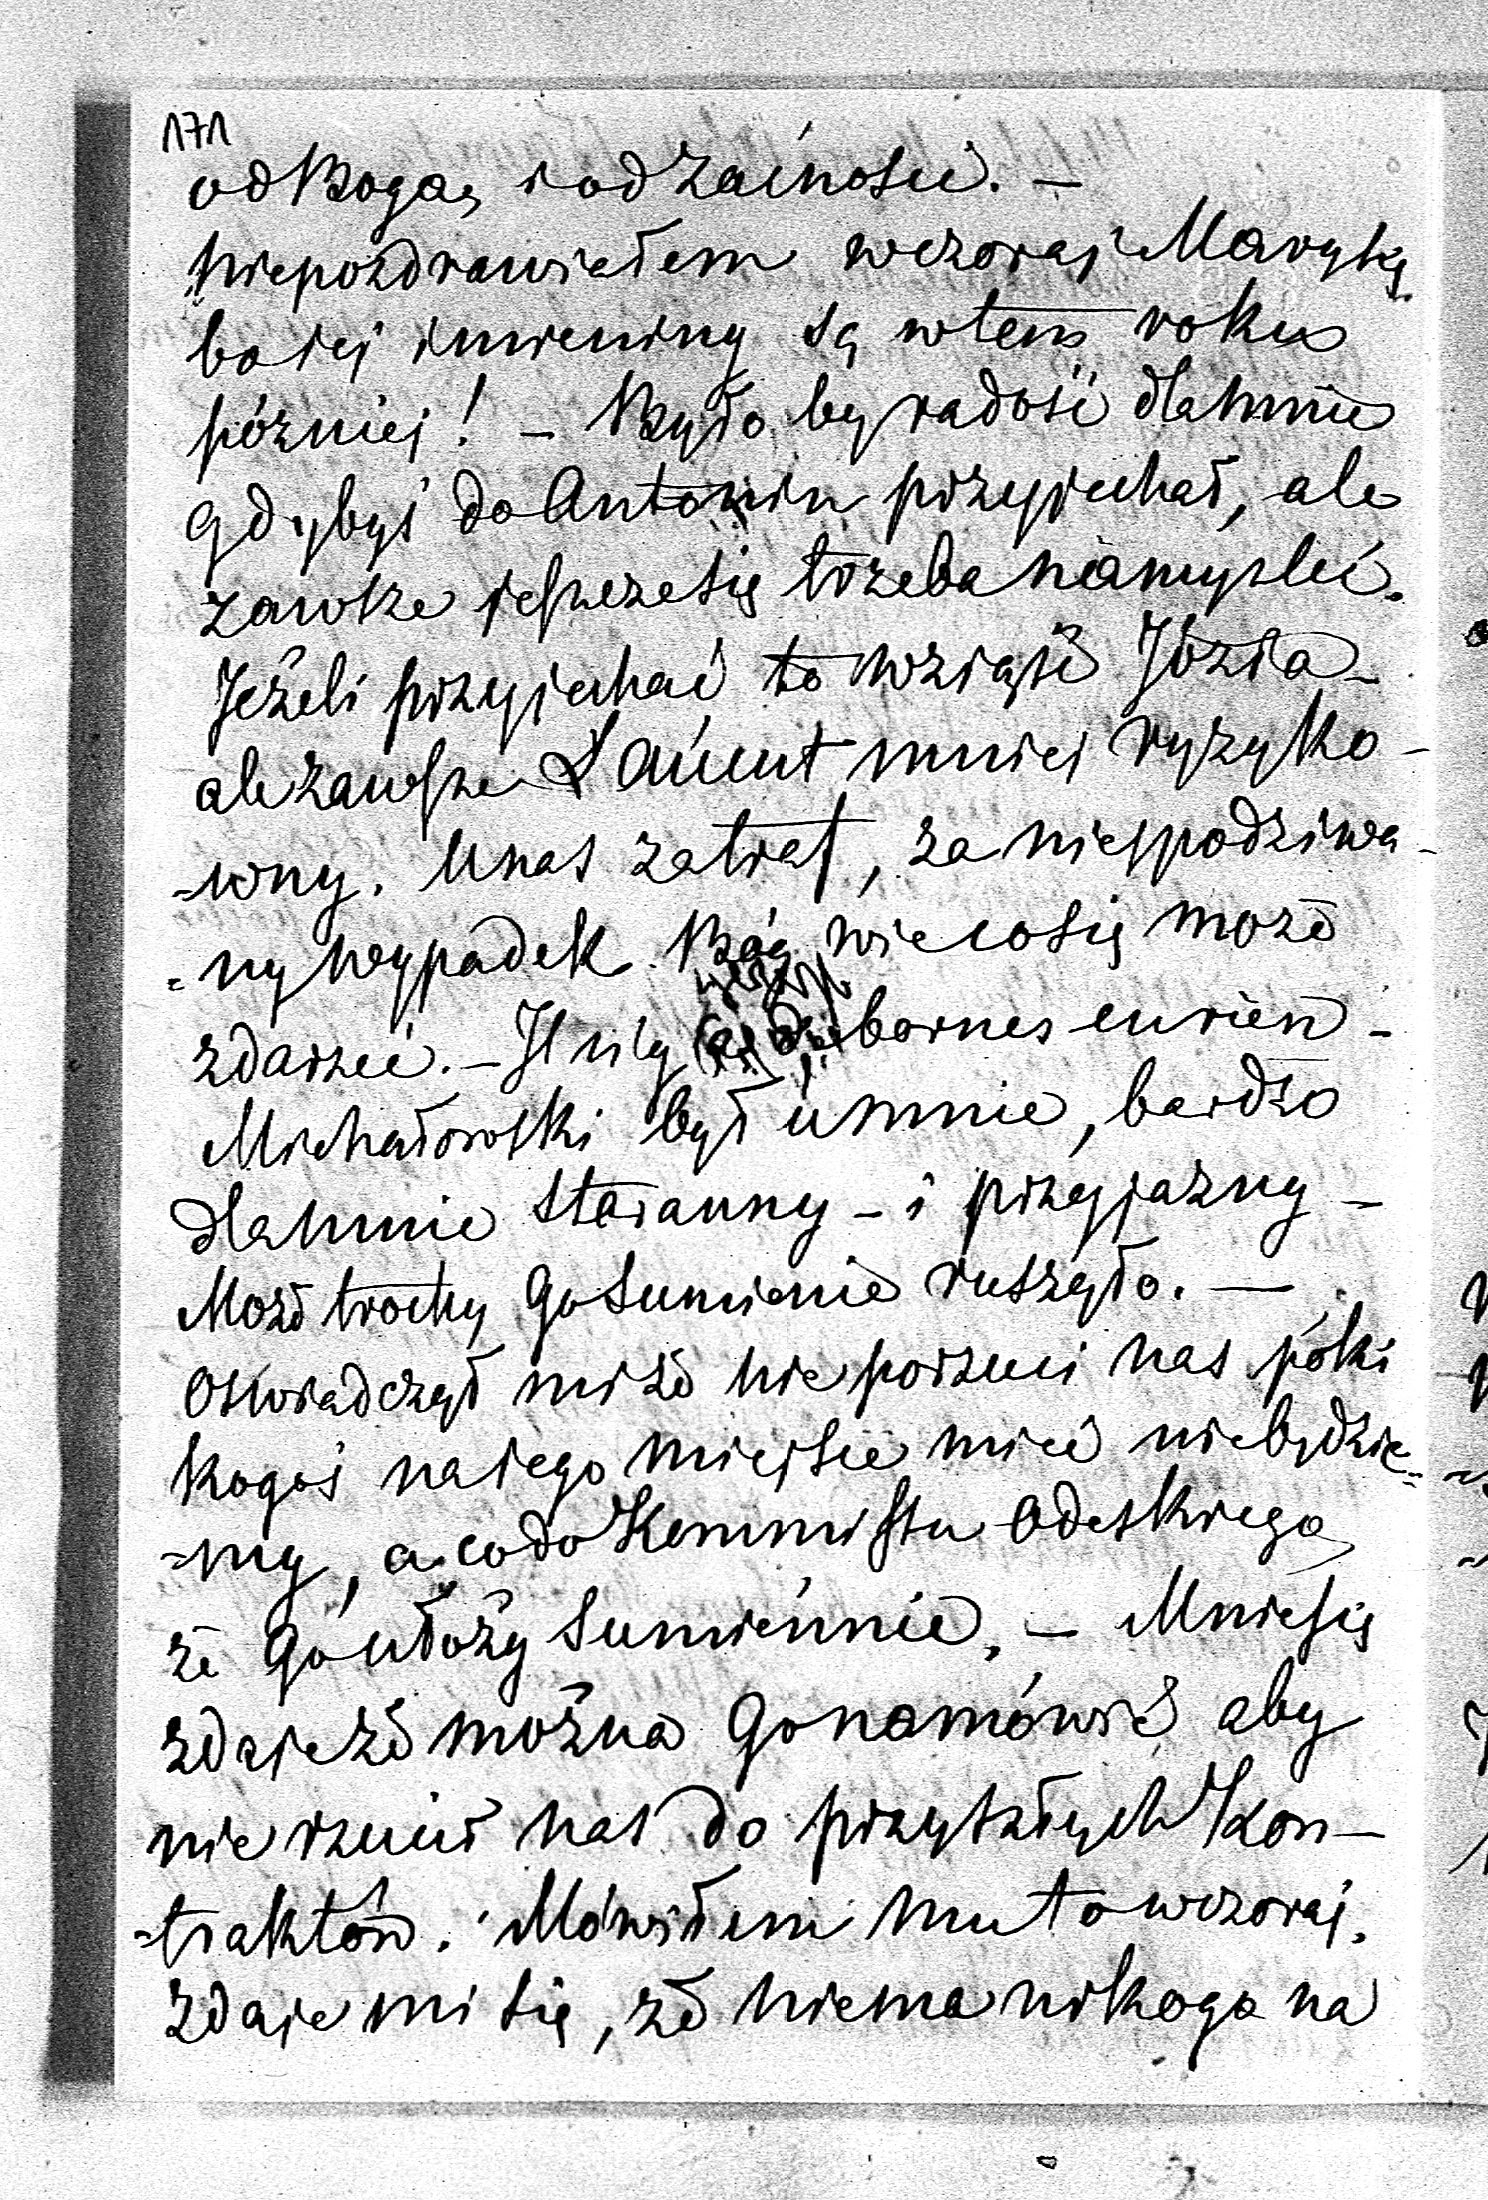 171
od Boga, i od Zacności. —
Niepozdrawiałem wczoraj Marykę
bo jej imieniny są w tem roku
później! — Było by radość dla mnie
gdybyś do Antonin przyjechał, ale
zawsze jeszcze się trzeba namyśleć.
Jeżeli przyjechać to wziąść Józia —
ale zawsze Łańcut mniej ryzyko-
-wny. U nas zatrat, za niespodziwa-
-ny wypadek Bóg wie co się może
zdarzeć. — Il n'y bornes en rien —
Michałowski był u mnie, bardzo
dla mnie staranny — i przyjazny —
Może trochę go sumienie ruszyło. —
Oświadczył mi że nie porzuci nas póki
kogoś na jego miejsce mieć niebędzie-
-my, a co do Kommissu Odeskiego
że go ułoży sumiennie. — Mnie się
zdaje że można go namówić aby
nie rzucił nas do przyszłych Kon-
-traktów. Mówiłem mu to wczoraj.
Zdaje mi się, że niema nikogo na